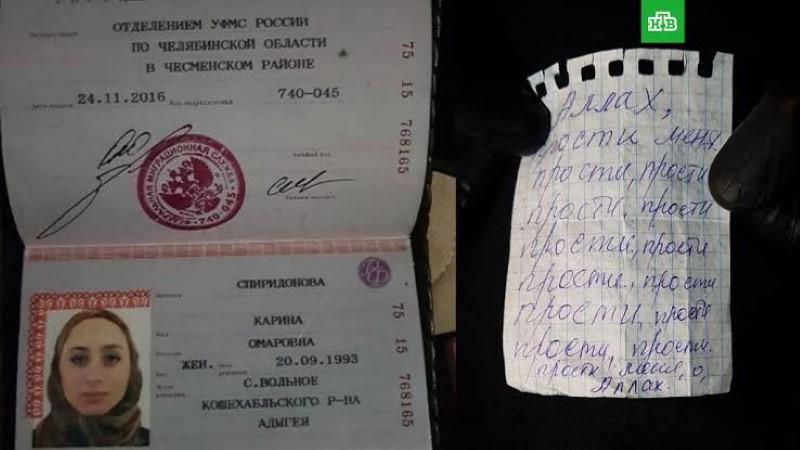 ОТДЕЛЕНИЕМ УФМС РОССИИ
ПО ЧЕЛЯБИНСКОЙ ОБЛАСТИ
В ЧЕСМЕНСКОМ РАЙОНЕ
Дата выдачи 24.11.2016 Код подразделения 740-045
75 15 768165
Личный код
740-045
СПИРИДОНОВА
КАРИНА
ОМАРОВНА
ЖЕН. 20.09.1993
С.ВОЛЬНОЕ
КОШЕХАБЛЬСКОГО Р-НА
АДЫГЕЯ
75 15 768165
РФ
НТВ
Аллах,
прости меня.
прости, прости
прости, прости
прости, прости
прости, прости
прости, прости
прости, прости.
прости меня, о,
Аллах.